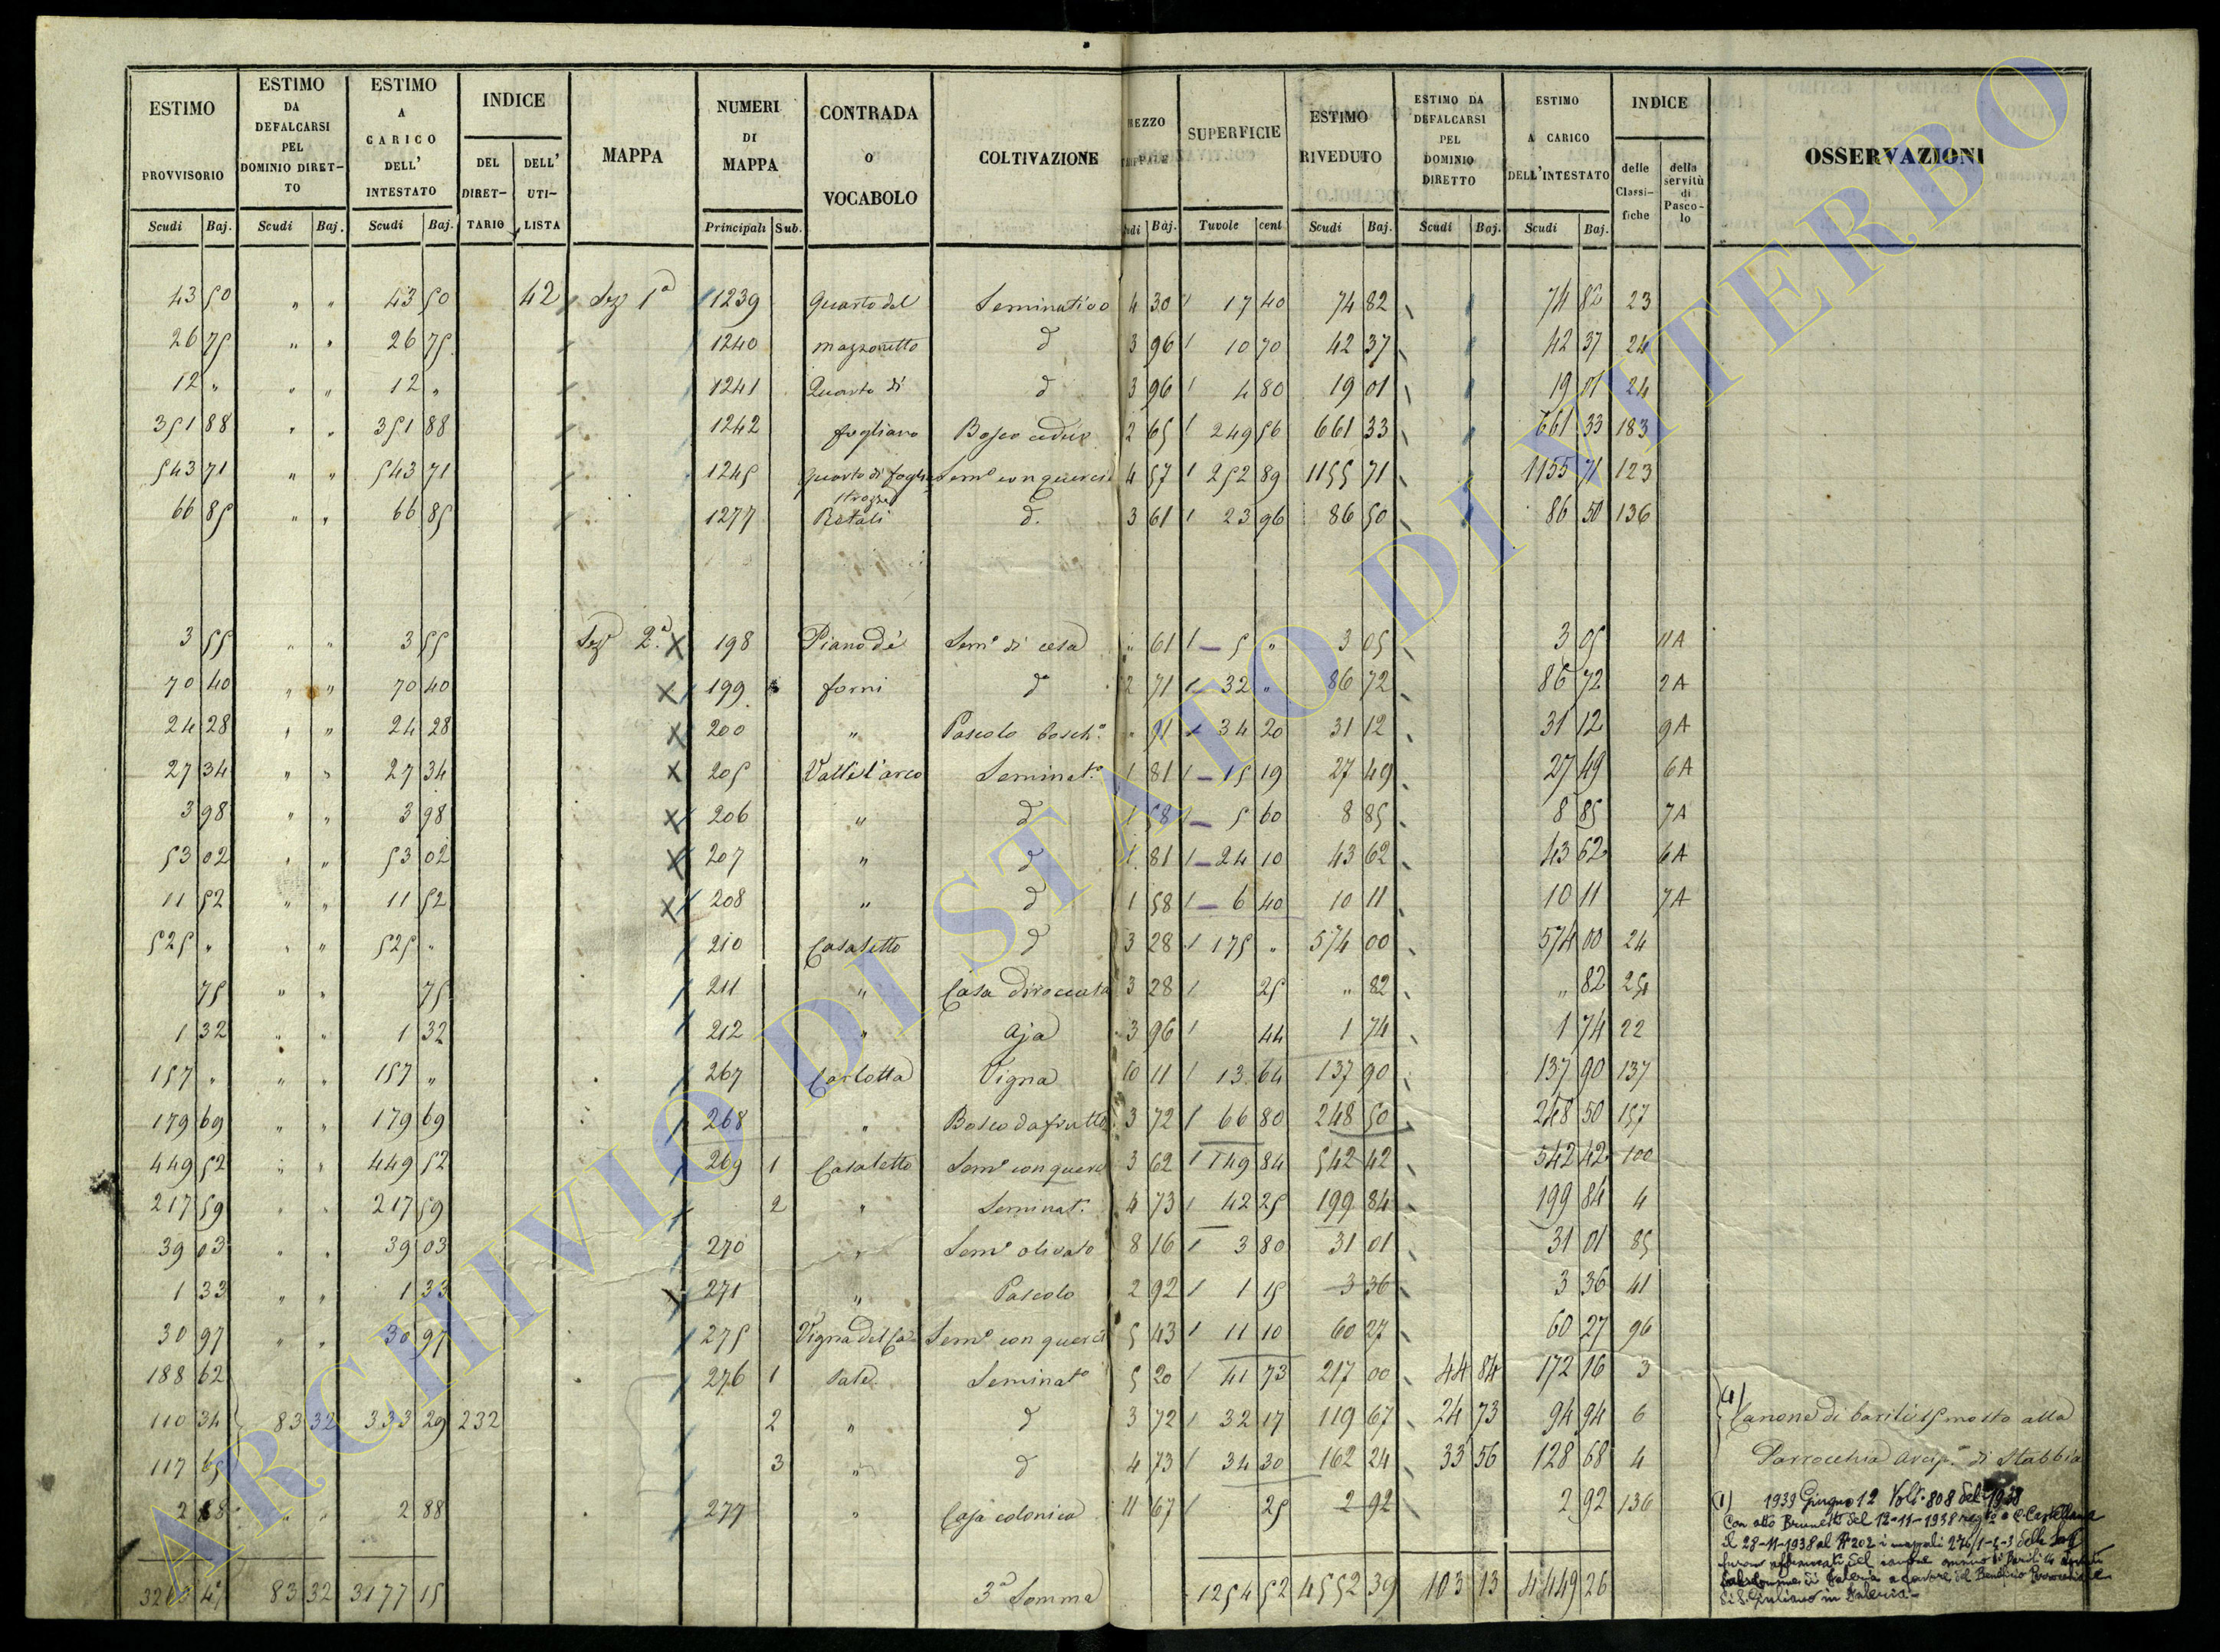 ESTIMO PROVVISORIO | ESTIMO DA DEFALCARSI PEL DOMINIO DIRETTO | ESTIMO A CARICO DELL' INTESTATO | INDICE | MAPPA | NUMERI DI MAPPA | CONTRADA O VOCABOLO | COLTIVAZIONE | SUPERFICIE | ESTIMO RIVEDUTO | ESTIMO DA DEFALCARSI PEL DOMINIO DIRETTO | ESTIMO A CARICO DELL'INTESTATO | INDICE | OSSERVAZIONI
Scudi Baj. | Scudi Baj. | Scudi Baj. | DEL DIRET-TARIO | DELL' UTI-LISTA | Principali Sub. | Baj. | Tavole cent | Scudi Baj. | Scudi Baj. | Scudi Baj. | delle Classi-fiche | della servitù di Pasco-lo
43 50 " " 43 50 42 Sez 1ª 1239 Quarto del Seminativo 4 30 17 40 74 82 74 82 23
26 75 " " 26 75 1240 mazzonetto d 3 96 10 70 42 37 42 37 24
12 " " " 12 " 1241 Quarto di d 3 96 4 80 19 01 19 01 24
351 88 " " 351 88 1242 fogliano Bosco ceduo 2 65 249 56 661 33 661 33 183
543 71 " " 543 71 1245 Quarto di foglia Semo con querci 4 57 252 89 1155 71 1155 71 123
66 85 " " 66 85 1277 d. 3 61 23 96 86 50 86 50 136
3 55 " " 3 55 Sez 2ª X 198 Piano de' Semo di cesa " 61 5 " 3 05 3 05 11A
70 40 " " 70 40 X 199 forni do 2 71 32 " 86 72 86 72 2A
24 28 " " 24 28 X 200 " Pascolo bosch.o " 91 34 20 31 12 31 12 9A
27 34 " " 27 34 X 205 Valle l'arco Seminat.o 1 81 15 19 27 49 27 49 6A
3 98 " " 3 98 X 206 " d 1 58 5 60 8 85 8 85 7A
53 02 " " 53 02 X 207 " d 1 81 24 10 43 62 43 62 6A
11 52 " " 11 52 X 208 " d 1 58 6 40 10 11 10 11 7A
525 " " " 525 " 210 Casaletto d 3 28 175 " 574 00 574 00 24
75 " " 75 211 " Casa diroccata 3 28 25 " 82 " 82 25
1 32 " " 1 32 212 " Aja 3 96 44 1 74 1 74 22
157 " " " 157 " 267 Carlotta Vigna 10 11 13 64 137 90 137 90 137
179 69 " " 179 69 268 " Bosco da frutto 3 72 66 80 248 50 248 50 157
449 52 " " 449 52 269 1 Casaletto Semo con querci 3 62 149 84 542 42 542 42 100
217 59 " " 217 59 2 " Seminat. 4 73 42 25 199 84 199 84 4
39 03 " " 39 03 270 " Semo olivato 8 16 3 80 31 01 31 01 85
1 33 " " 1 33 X 271 " Pascolo 2 92 1 15 3 36 3 36 41
30 97 " " 30 97 275 Vigna del Ca- Semo con querci 5 43 11 10 60 27 60 27 96
188 62 276 1 sale Seminato 5 20 41 73 217 00 44 84 172 16 3
110 34 83 32 333 29 232 2 " d 3 72 32 17 119 67 24 73 94 94 6
117 65 3 " d 4 73 34 30 162 24 33 56 128 68 4
2 88 " " 2 88 277 " Casa colonica 11 67 25 2 92 2 92 136
83 32 3177 15 3ª Somma 1254 52 4552 39 103 13 4449 26
Canone di barili 15 mosto alla
Parrocchia Arcip. di Stabbia
(1) 1939 Giugno 12 Volt. 808 del 1938
Con atto Brunetti del 12-11-1938 reg.to a C. Castellana
il 28-11-1938 al N 202 i mappali 276/1-2-3 della
furono affrancati del canone annuo di Barili
di Faleria a favore del Beneficio Parrocchiale
di S. Giuliano in Faleria
ARCHIVIO DI STATO DI VITERBO